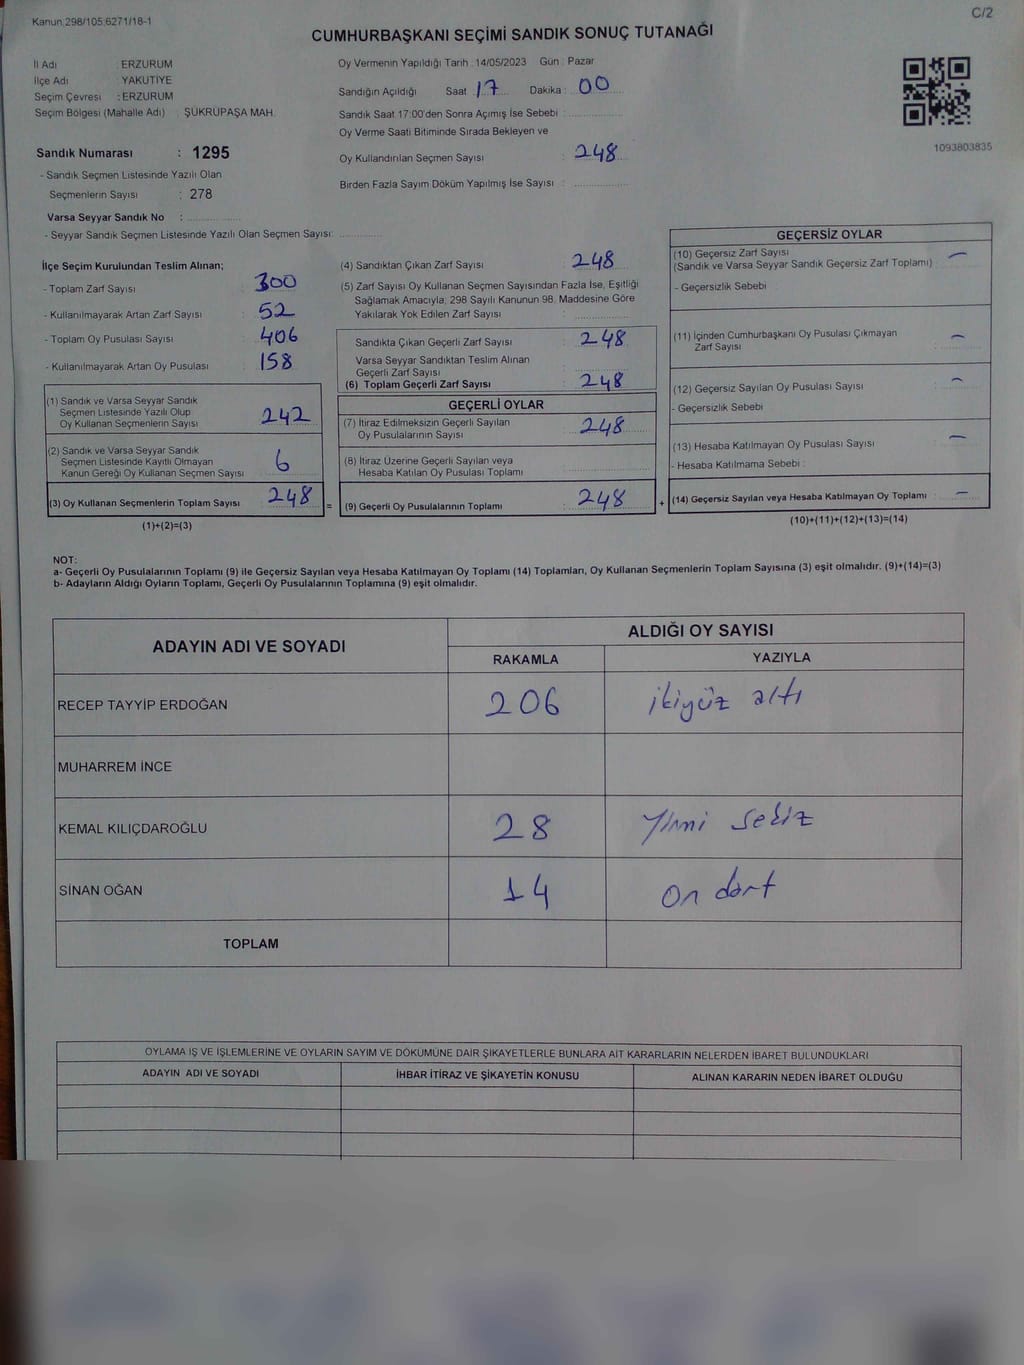 Kanun 298/105,6271/18-1
C/2
CUMHURBAŞKANI SEÇİMİ SANDIK SONUÇ TUTANAĞI
İl Adı : ERZURUM
İlçe Adı : YAKUTİYE
Seçim Çevresi : ERZURUM
Seçim Bölgesi (Mahalle Adı) : ŞÜKRÜPAŞA MAH.
Sandık Numarası : 1295
- Sandık Seçmen Listesinde Yazılı Olan
Seçmenlerin Sayısı : 278
Varsa Seyyar Sandık No :
- Seyyar Sandık Seçmen Listesinde Yazılı Olan Seçmen Sayısı:
Oy Vermenin Yapıldığı Tarih : 14/05/2023 Gün : Pazar
Sandığın Açıldığı Saat : 17 Dakika : 00
Sandık Saat 17:00'den Sonra Açımış İse Sebebi :
Oy Verme Saati Bitiminde Sırada Bekleyen ve
Oy Kullandırılan Seçmen Sayısı : 248
Birden Fazla Sayım Döküm Yapılmış İse Sayısı :
1093803835
İlçe Seçim Kurulundan Teslim Alınan;
- Toplam Zarf Sayısı : 300
- Kullanılmayarak Artan Zarf Sayısı : 52
- Toplam Oy Pusulası Sayısı : 406
- Kullanılmayarak Artan Oy Pusulası : 158
(1) Sandık ve Varsa Seyyar Sandık
Seçmen Listesinde Yazılı Olup
Oy Kullanan Seçmenlerin Sayısı : 242
(2) Sandık ve Varsa Seyyar Sandık
Seçmen Listesinde Kayıtlı Olmayan
Kanun Gereği Oy Kullanan Seçmen Sayısı : 6
(3) Oy Kullanan Seçmenlerin Toplam Sayısı : 248
(1)+(2)=(3)
=
(4) Sandıktan Çıkan Zarf Sayısı : 248
(5) Zarf Sayısı Oy Kullanan Seçmen Sayısından Fazla İse, Eşitliği
Sağlamak Amacıyla; 298 Sayılı Kanunun 98. Maddesine Göre
Yakılarak Yok Edilen Zarf Sayısı :
Sandıkta Çıkan Geçerli Zarf Sayısı : 248
Varsa Seyyar Sandıktan Teslim Alınan
Geçerli Zarf Sayısı :
(6) Toplam Geçerli Zarf Sayısı : 248
GEÇERLİ OYLAR
(7) İtiraz Edilmeksizin Geçerli Sayılan
Oy Pusulalarının Sayısı : 248
(8) İtiraz Üzerine Geçerli Sayılan veya
Hesaba Katılan Oy Pusulası Toplamı :
(9) Geçerli Oy Pusulalarının Toplamı : 248
+
GEÇERSİZ OYLAR
(10) Geçersiz Zarf Sayısı : —
(Sandık ve Varsa Seyyar Sandık Geçersiz Zarf Toplamı)
- Geçersizlik Sebebi
(11) İçinden Cumhurbaşkanı Oy Pusulası Çıkmayan
Zarf Sayısı : —
(12) Geçersiz Sayılan Oy Pusulası Sayısı : —
- Geçersizlik Sebebi
(13) Hesaba Katılmayan Oy Pusulası Sayısı : —
- Hesaba Katılmama Sebebi :
(14) Geçersiz Sayılan veya Hesaba Katılmayan Oy Toplamı : —
(10)+(11)+(12)+(13)=(14)
NOT:
a- Geçerli Oy Pusulalarının Toplamı (9) ile Geçersiz Sayılan veya Hesaba Katılmayan Oy Toplamı (14) Toplamları, Oy Kullanan Seçmenlerin Toplam Sayısına (3) eşit olmalıdır. (9)+(14)=(3)
b- Adayların Aldığı Oyların Toplamı, Geçerli Oy Pusulalarının Toplamına (9) eşit olmalıdır.
ADAYIN ADI VE SOYADI
ALDIĞI OY SAYISI
RAKAMLA YAZIYLA
RECEP TAYYİP ERDOĞAN 206 ikiyüz altı
MUHARREM İNCE
KEMAL KILIÇDAROĞLU 28 Yirmi sekiz
SİNAN OĞAN 14 on dört
TOPLAM
OYLAMA İŞ VE İŞLEMLERİNE VE OYLARIN SAYIM VE DÖKÜMÜNE DAİR ŞİKAYETLERLE BUNLARA AİT KARARLARIN NELERDEN İBARET BULUNDUKLARI
ADAYIN ADI VE SOYADI İHBAR İTİRAZ VE ŞİKAYETİN KONUSU ALINAN KARARIN NEDEN İBARET OLDUĞU